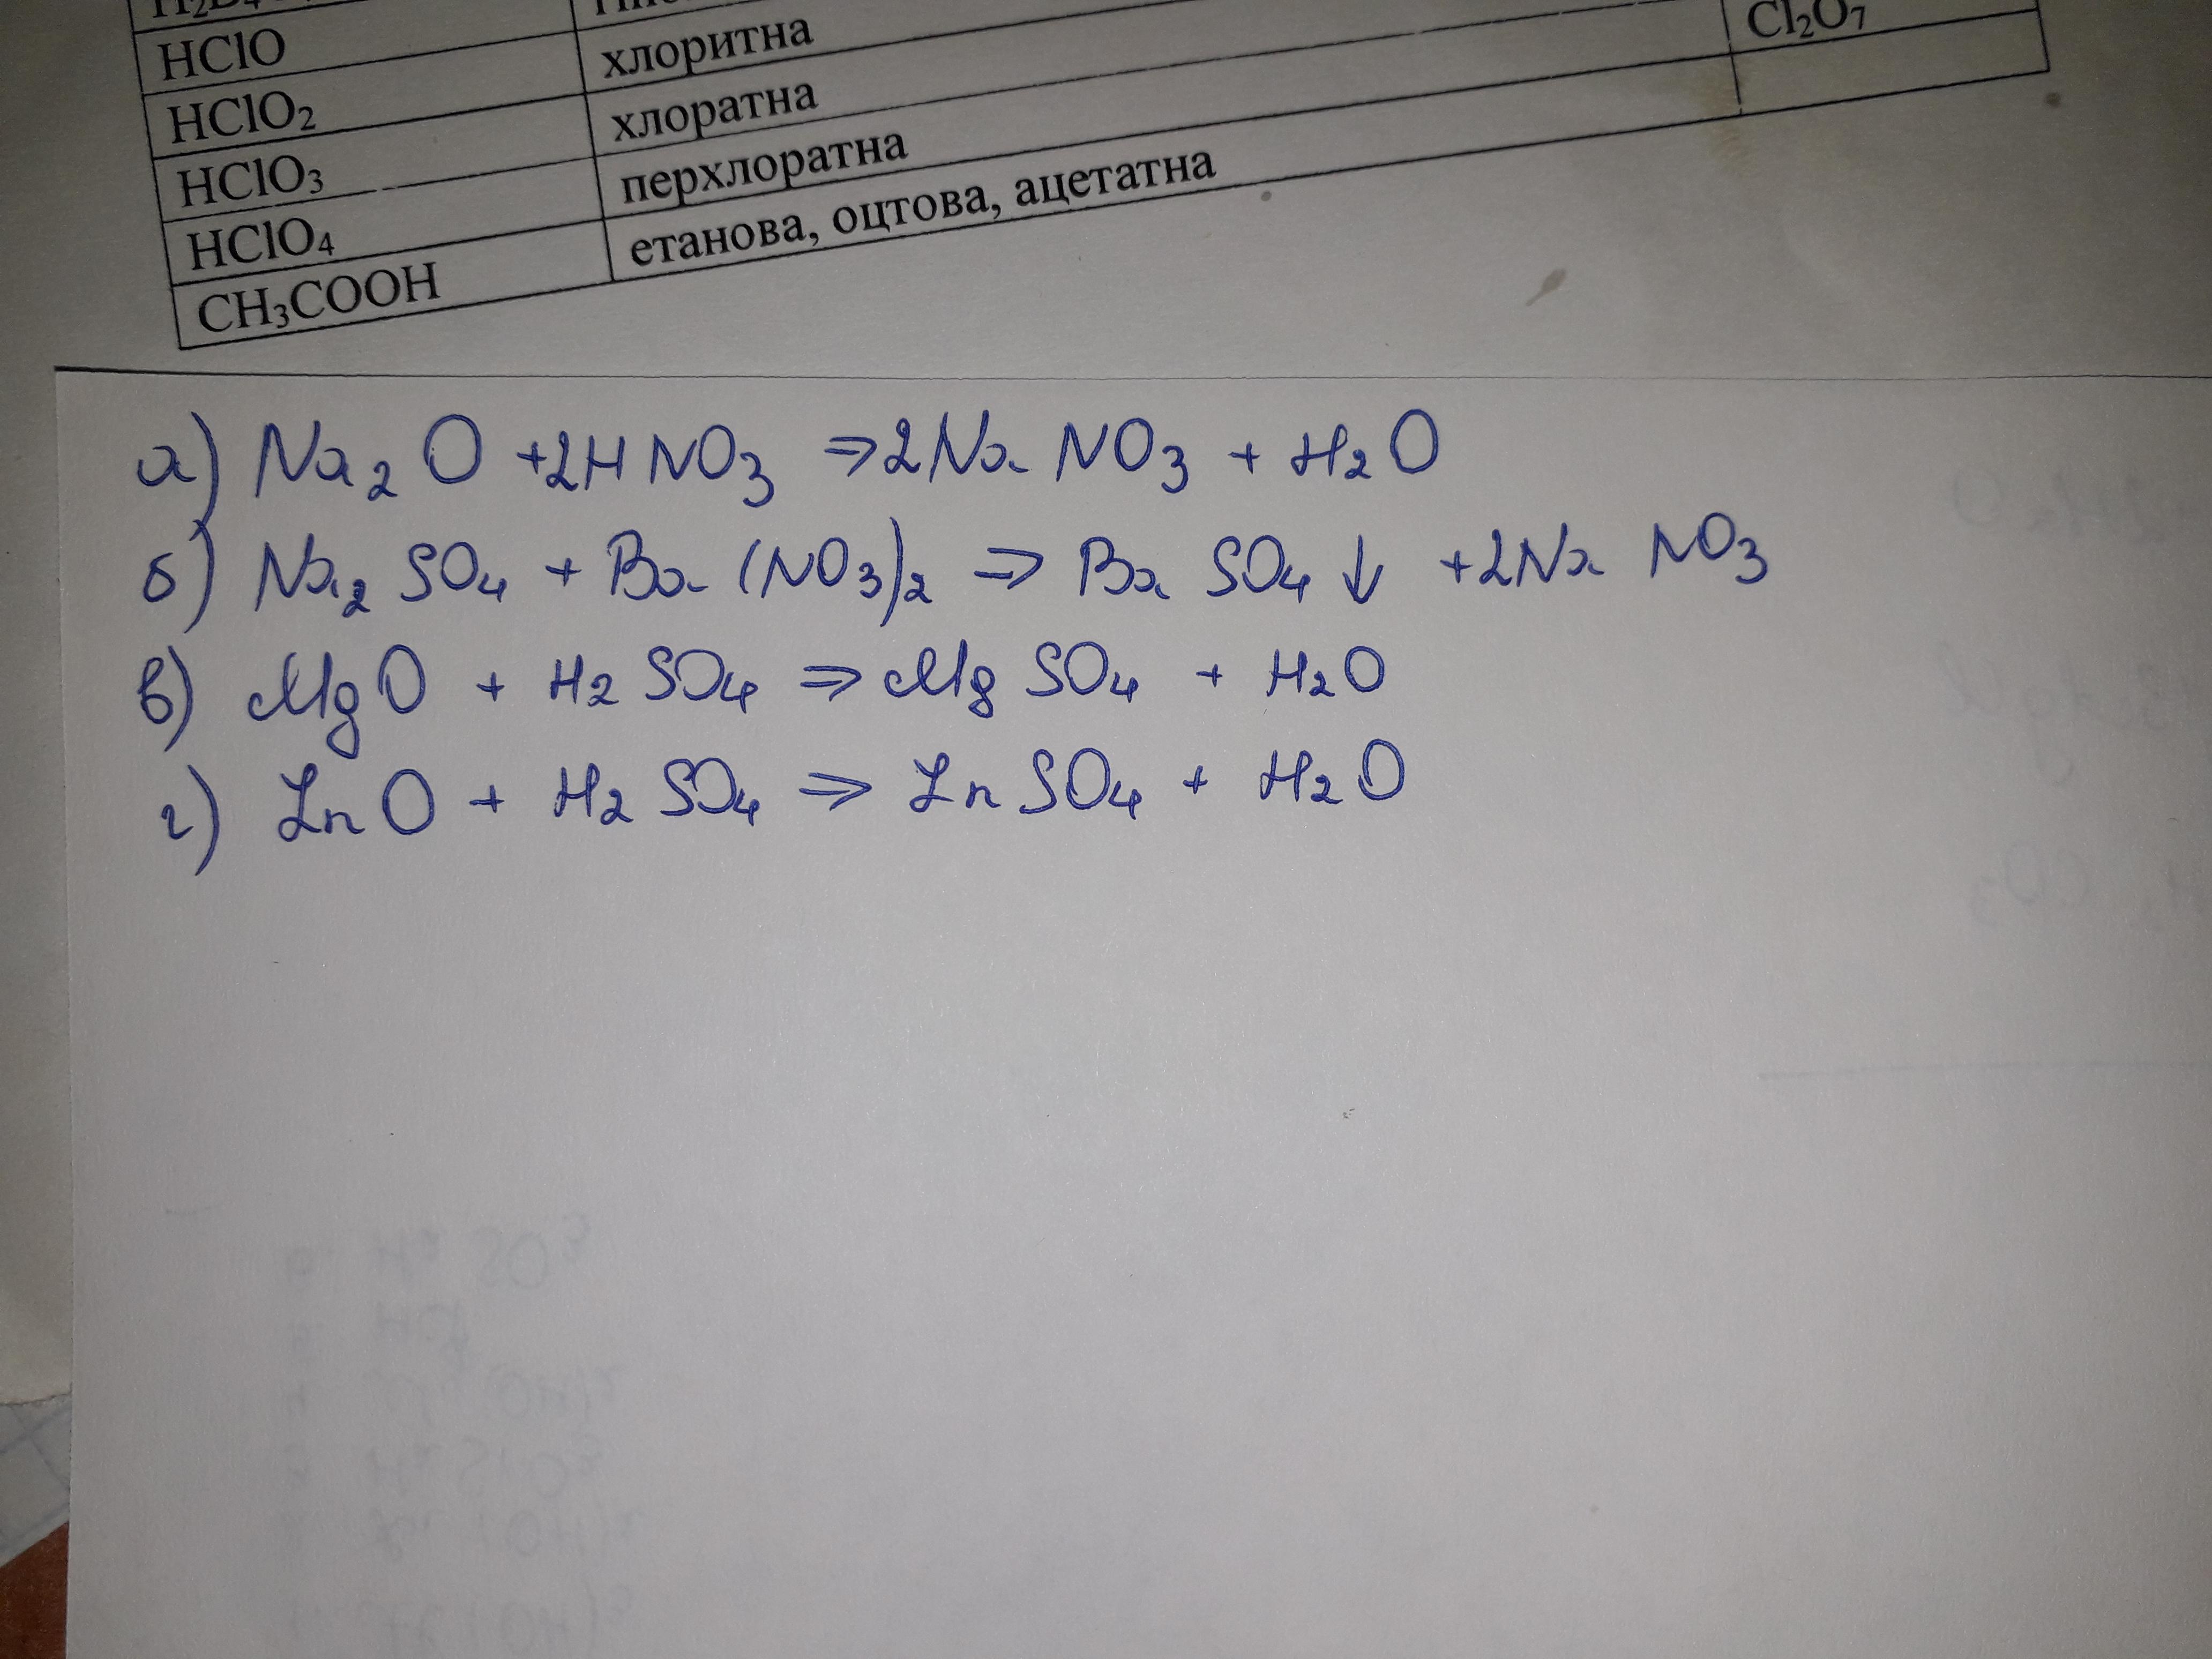 HClO
хлоритна
Cl₂O₇
HClO₂
хлоратна
HClO₃
перхлоратна
HClO₄
етанова, оцтова, ацетатна
CH₃COOH
а) Na₂O + 2HNO₃ ⇒ 2NaNO₃ + H₂O
б) Na₂SO₄ + Ba(NO₃)₂ ⇒ BaSO₄↓ + 2NaNO₃
в) MgO + H₂SO₄ ⇒ MgSO₄ + H₂O
г) ZnO + H₂SO₄ ⇒ ZnSO₄ + H₂O